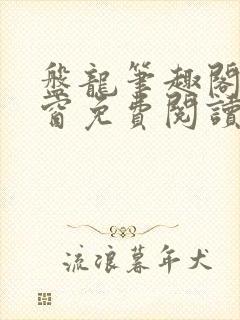 盤龍筆趣閣
窗免費閱讀
流浪暮年犬